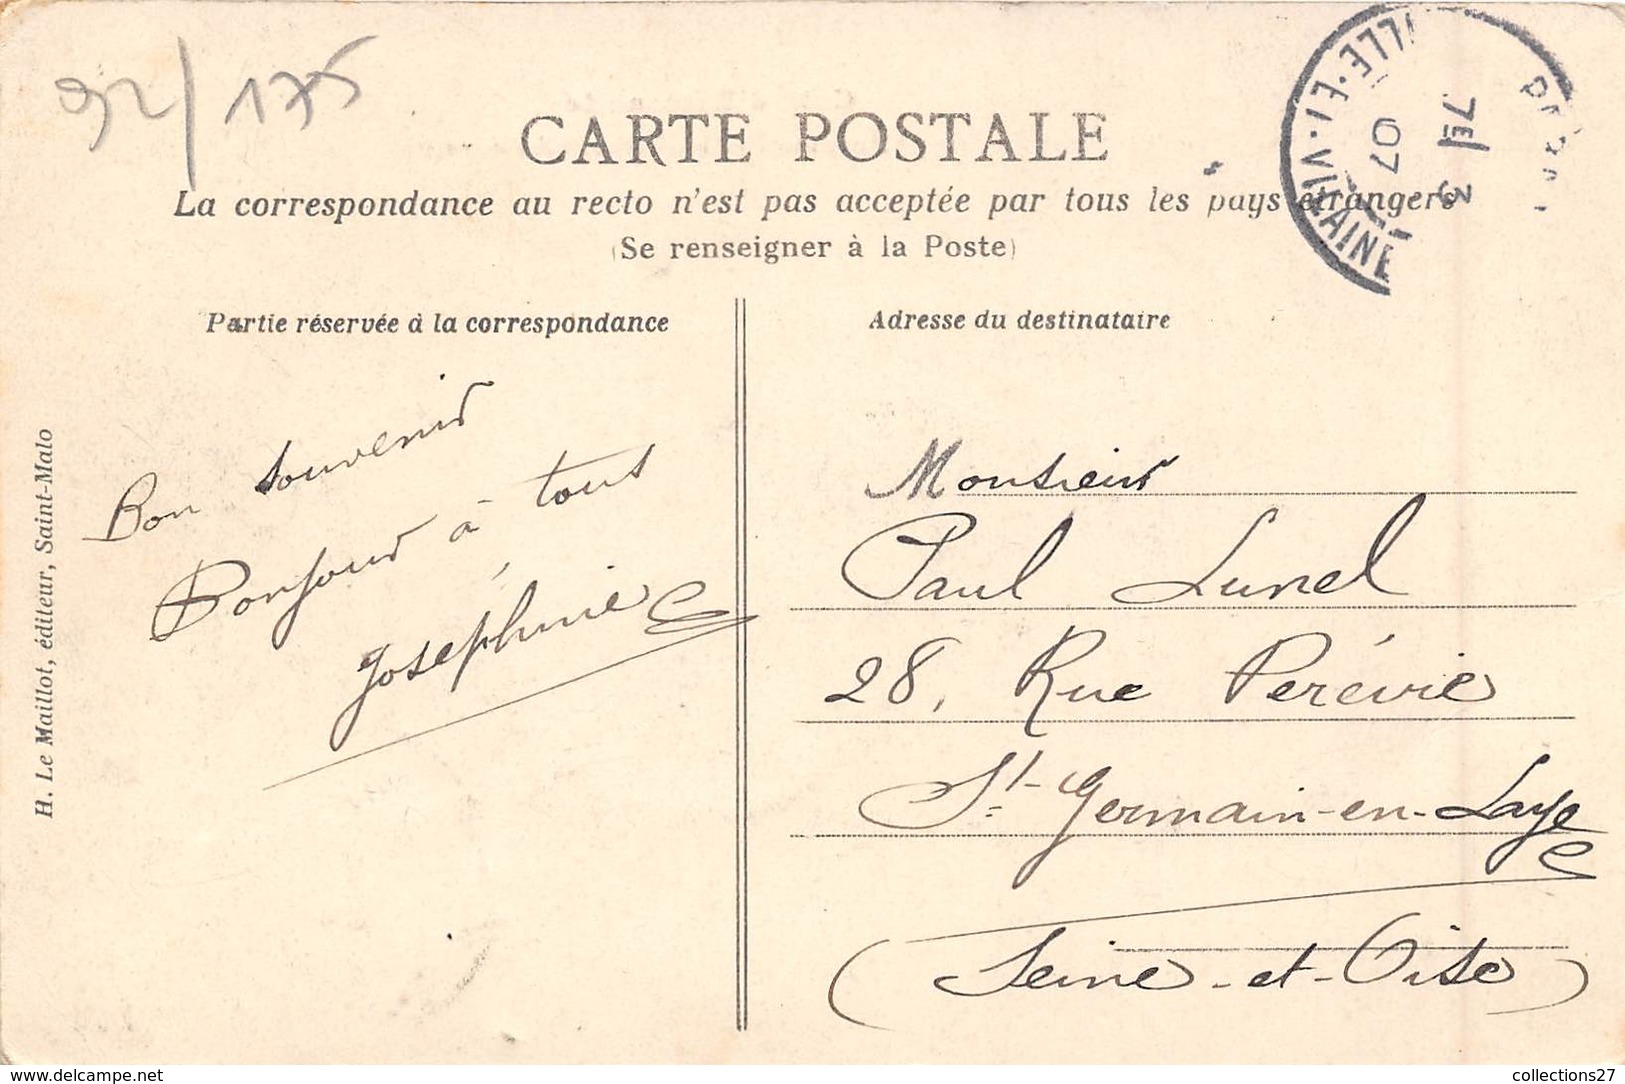 92/175
CARTE POSTALE
La correspondance au recto n'est pas acceptée par tous les pays étrangers
(Se renseigner à la Poste)
ILLE-ET-VILAINE
07
Partie réservée à la correspondance
Adresse du destinataire
Bon souvenir
Bonjour à tous
Joséphine
Monsieur
Paul Lunel
28, Rue Peréire
St-Germain-en-Laye
(Seine-et-Oise)
H. Le Maillot, éditeur, Saint-Malo
www.delcampe.net
collections27